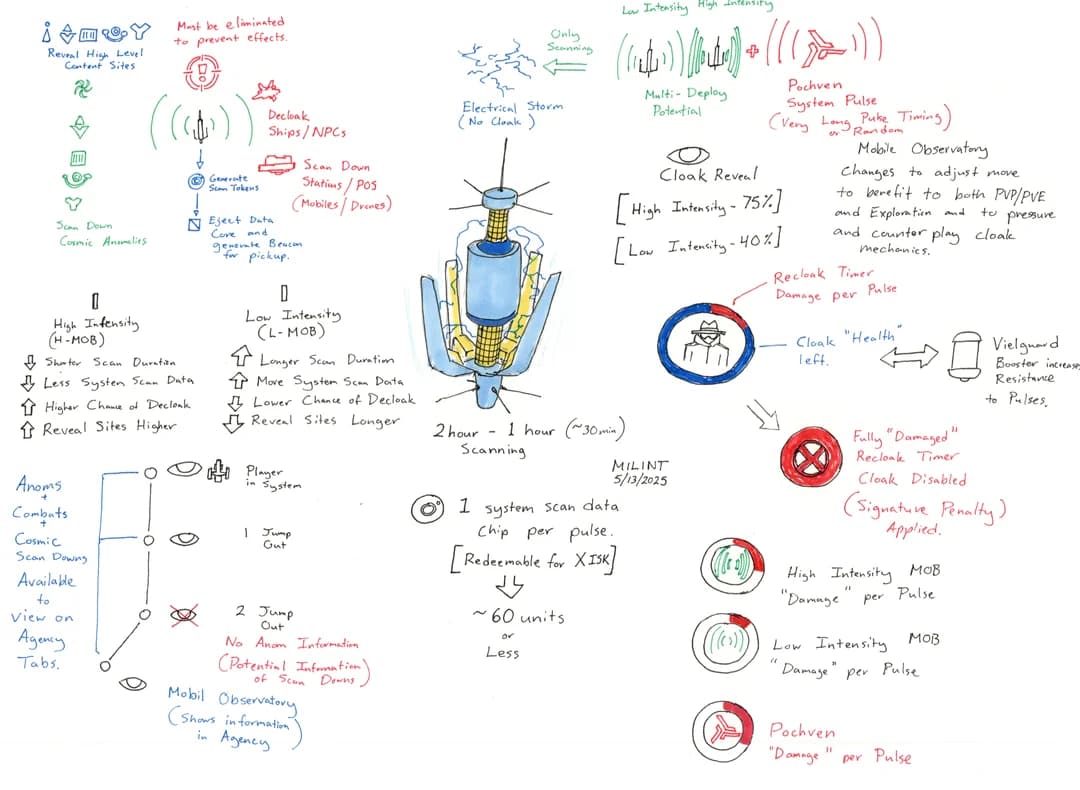 Reveal High Level
Content Sites
Must be eliminated
to prevent effects.
Decloak
Ships/NPCs
Generate
Scan Tokens
Scan Down
Stations/POS
(Mobiles/Drones)
Eject Data
Core and
generate Beacon
for pickup.
Scan Down
Cosmic Anomalies
Low Intensity High Intensity
Only
Scanning
Electrical Storm
(No Cloak)
Multi-Deploy
Potential
+
Pochven
System Pulse
(Very Long Puke Timing)
or Random
Cloak Reveal
[High Intensity - 75%]
[Low Intensity - 40%]
Mobile Observatory
Changes to adjust move
to benefit to both PVP/PVE
and Exploration and to pressure
and counter play cloak
mechanics.
High Intensity
(H-MOB)
Shorter Scan Duration
Less System Scan Data
Higher Chance of Decloak
Reveal Sites Higher
Low Intensity
(L-MOB)
Longer Scan Duration
More System Scan Data
Lower Chance of Decloak
Reveal Sites Longer
2 hour - 1 hour (~30min)
Scanning
MILINT
5/13/2025
1 system scan data
Chip per pulse.
[Redeemable for X ISK]
~60 units
or
Less
Anoms
+
Combats
+
Cosmic
Scan Downs
Available
to
view on
Agency
Tabs.
Player
in System
1 Jump
Out
2 Jump
Out
No Anom Information
(Potential Information
of Scan Downs)
Mobil Observatory
(Shows information
in Agency)
Recloak Timer
Damage per Pulse
Cloak "Health"
left.
Vielguard
Booster increases
Resistance
to Pulses.
Fully "Damaged"
Recloak Timer
Cloak Disabled
(Signature Penalty)
Applied.
High Intensity MOB
"Damage" per Pulse
Low Intensity MOB
"Damage" per Pulse
Pochven
"Damage" per Pulse